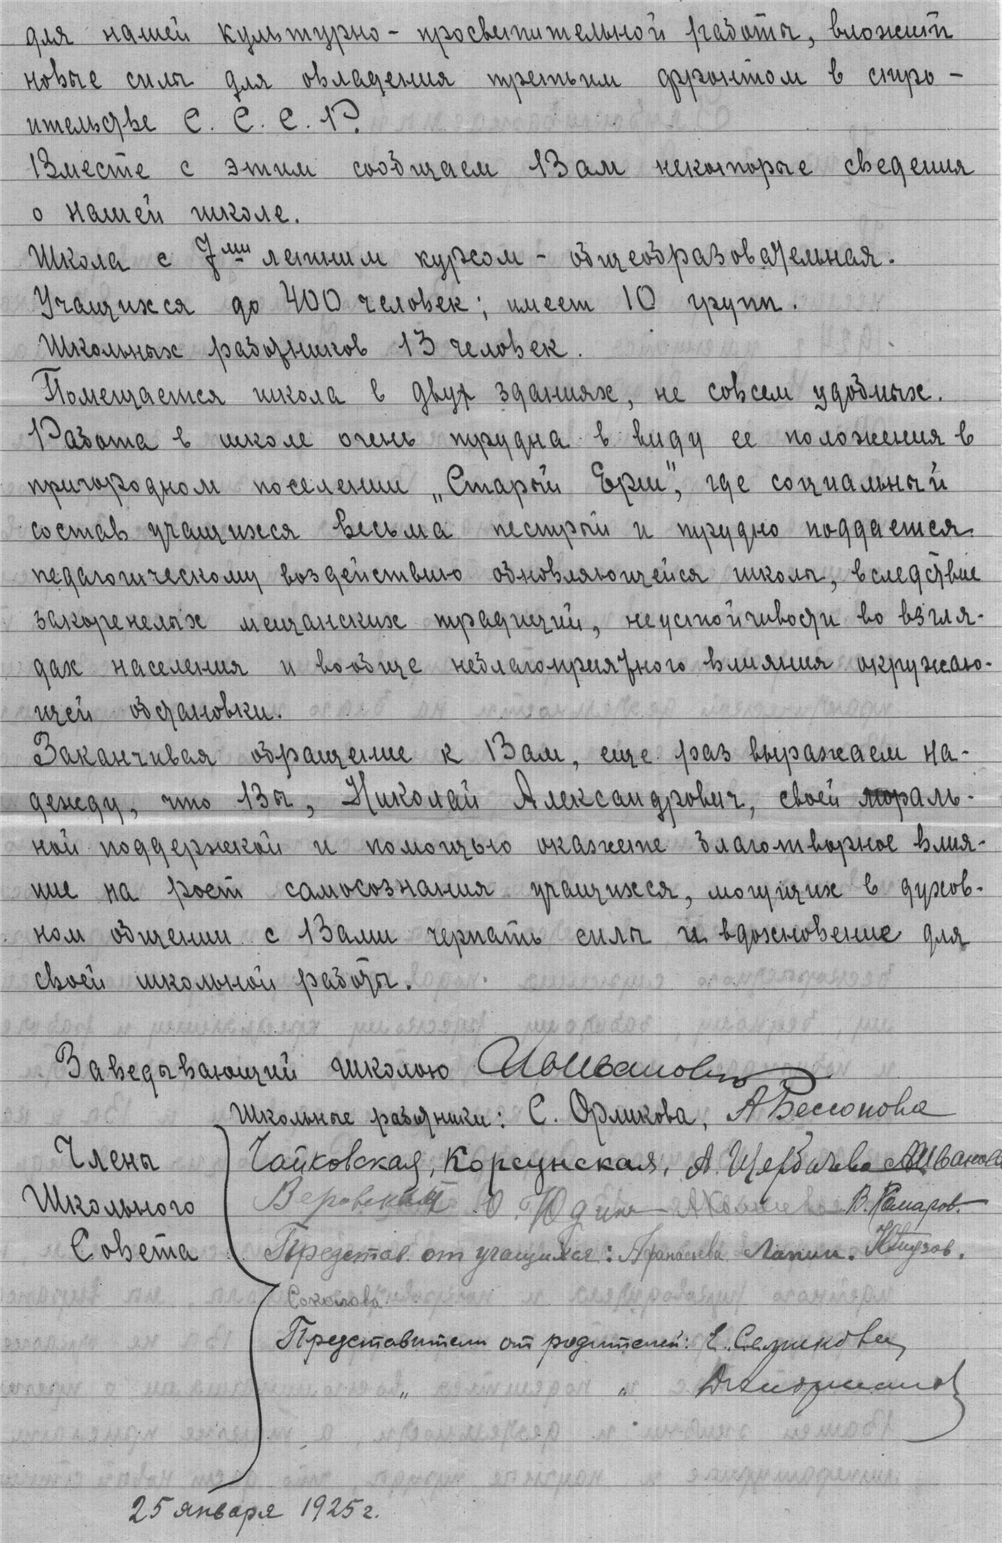 для нашей культурно-просветительной работы, вложит
новые силы для овладения третьим фронтом в стро-
ительстве С. С. С. Р.
Вместе с этим сообщаем Вам некоторые сведения
о нашей школе.
Школа с 7ми летним курсом - общеобразовательная.
Учащихся до 400 человек; имеет 10 групп.
Школьных работников 13 человек.
Помещается школа в двух зданиях, не совсем удобных.
Работа в школе очень трудна в виду ее положения в
пригородном поселении „Старый Ерш", где социальный
состав учащихся весьма пестрый и трудно поддается
педагогическому воздействию обновляющейся школы, вследствие
закоренелых мещанских традиций, неустойчивости во взгля-
дах населения и вообще неблагоприятного влияния окружаю-
щей обстановки.
Заканчивая обращение к Вам, еще раз выражаем на-
дежду, что Вы, Николай Александрович, своей мораль-
ной поддержкой и помощью окажете благотворное влия-
ние на рост самосознания учащихся, могущих в духов-
ном общении с Вами черпать силы и вдохновение для
своей школьной работы.
Заведывающий школою
Школьные работники: С. Орликова, А Бессонова
Члены Школьного Совета
Чайковская, Корсунская, А. Щербачева А Иванова
Веровский О. Юдин В. Комаров.
Представ от учащихся: Афанасьева Лапин.
Соколова
Представители от родителей: Е.
„ „
25 января 1925 г.